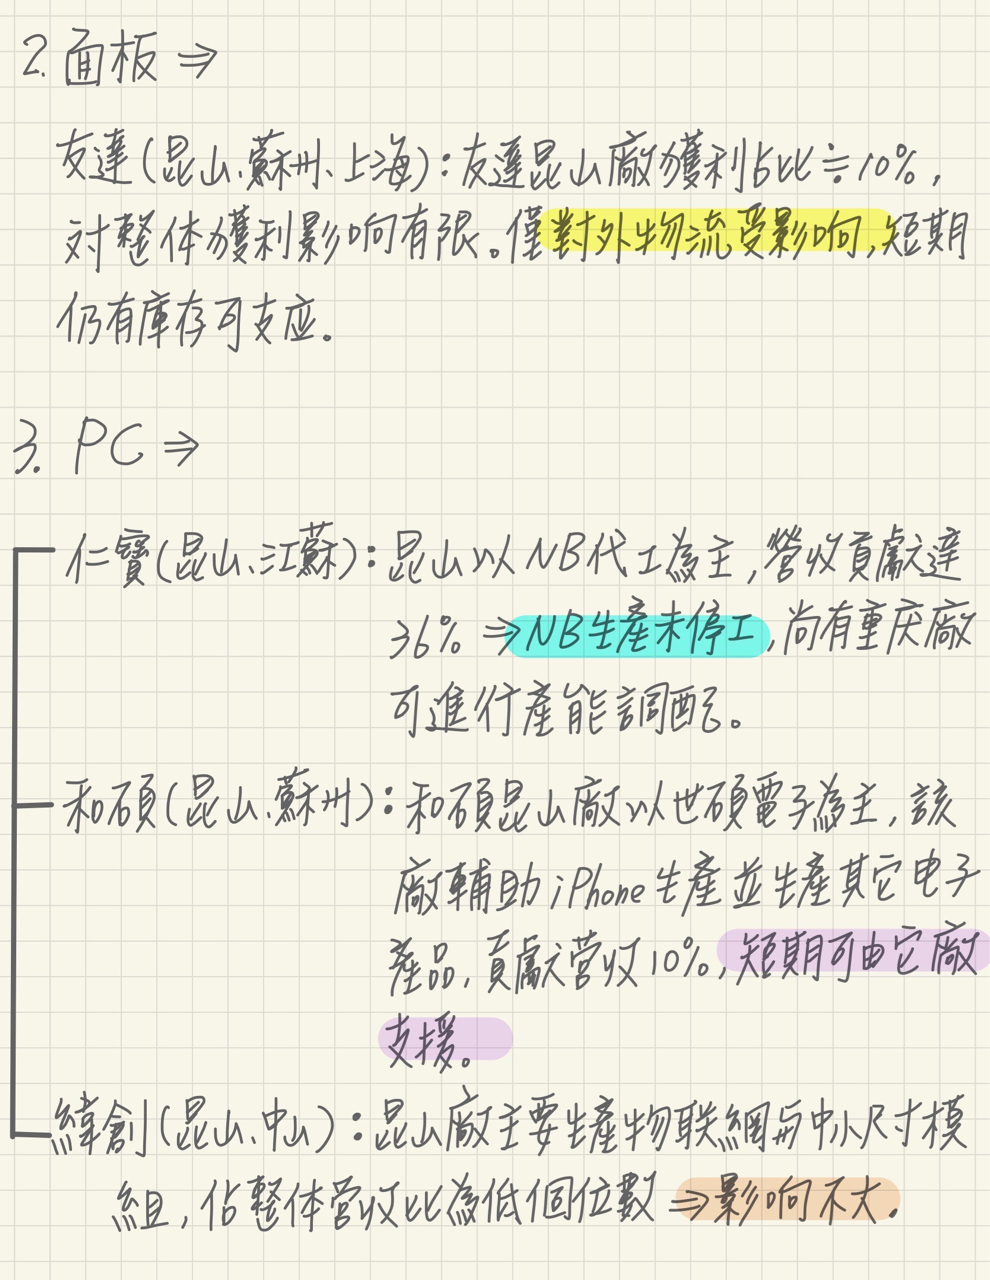 2. 面板 ⇒
友達(昆山、蘇州、上海):友達昆山廠獲利占比≒10%,
对整体獲利影响有限。僅對外物流受影响,短期
仍有庫存可支应。
3. PC ⇒
仁寶(昆山、江蘇):昆山以NB代工為主,營收貢獻達
36% ⇒NB生產未停工,尚有重庆廠
可進行產能調配。
和碩(昆山、蘇州):和碩昆山廠以世碩電子為主,該
廠輔助iPhone生產並生產其它电子
產品,貢獻营收10%,短期可由它廠
支援。
緯創(昆山、中山):昆山廠主要生產物联網与中小尺寸模
組,佔整体营收比為低個位數⇒影响不大.